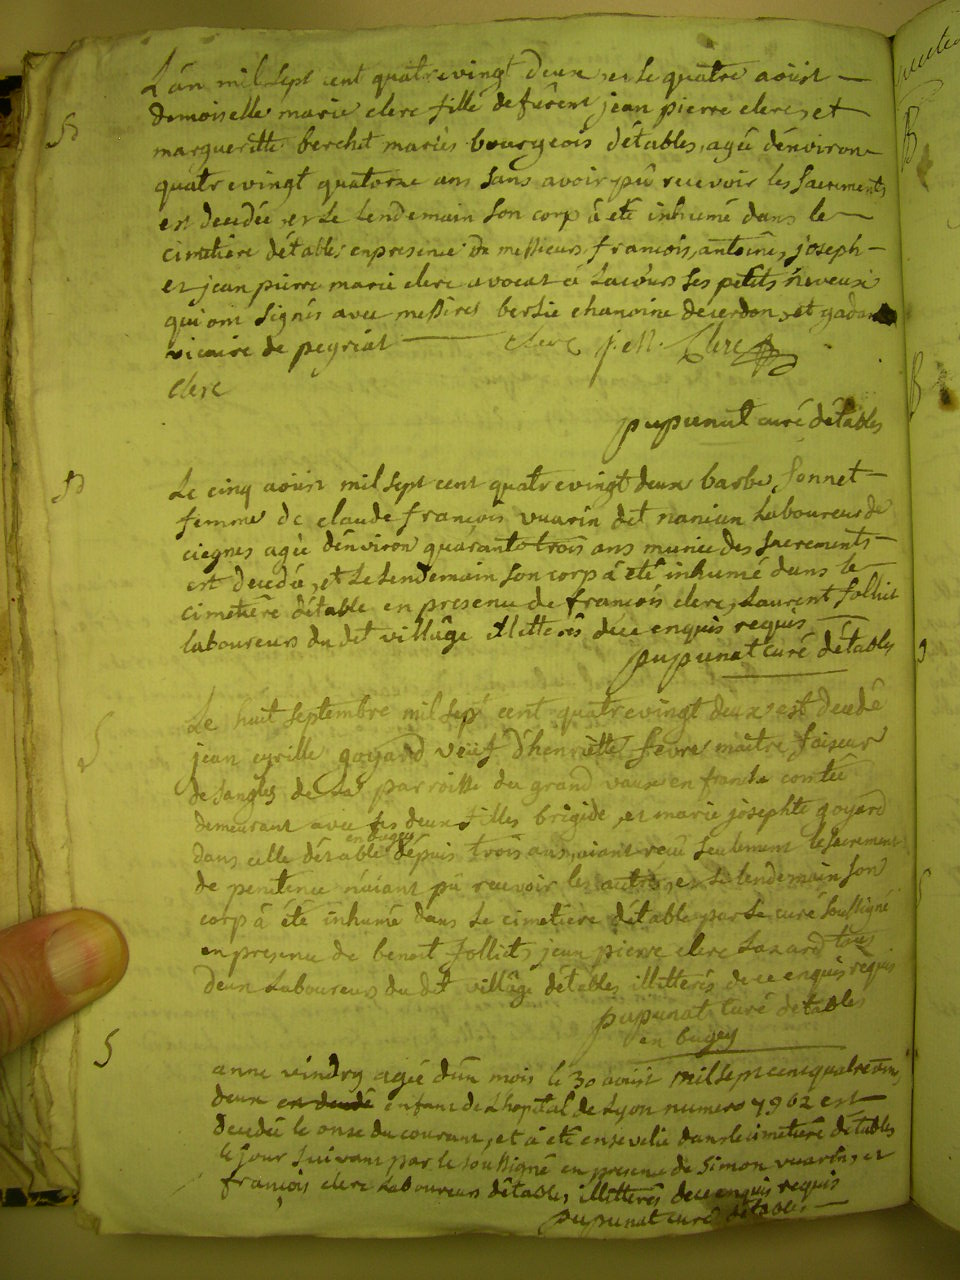 L'an mil sept cent quatrevingt deux et le quatre aoüst
demoiselle marie clerc fille de fûrent jean pierre clerc, et
margueritte berchet mariés bourgeois d'étables, agée dénviron
quatrevingt quatorze ans sans avoir pû recevoir les sacrements
est decedée, et le lendemain son corp à eté inhumé dans le
cimetiere d'étables en presence de messieurs francois, antoine, joseph
et jean pierre marie clerc avocat à la cour ses petits néveux
qui ont signés avec messires bersie chanoine de cerdon, et
vicaire de peyriat clerc j. M. Clerc
clerc
pupunat curé détables
5
Le cinq aoüst mil sept cent quatrevingt deux barbe sonnet
femme de claude francois vuarin dit laboureur de
ciegnes agée dénviron quarante trois ans munie des sacrements
est decedée, et le lendemain son corp â eté inhumé dans le
cimetiére détable en presence de francois clerc, Laurent folliet
laboureurs du dit villâge illetterés de ce enquis requis
pupunat curé détables
5
Le huit septembre mil sept cent quatrevingt deux est decedé
jean cyrille goyard veuf d'henriette fevre maitre faiseur
de sangles de la parroisse du grand vaux en franche comtée
demeurant avec ses deux filles brigide, et marie josephte goyard
en bugey
dans celle détable dépuis trois ans, aiant recu seulement le sacrement
de penitence n'aiant pû recevoir les autres, et le lendemain son
corp â été inhumé dans le cimetière détable par le curé soussigné
en presence de benoit folliet, jean pierre clerc Lazard tous
deux laboureurs du dit villâge détables illitterés de ce enquis requis
pupunat curé détables
en bugey
5
anne vindry agée d'un mois le 30 aoüst mil sept cent quatrevint
deux enfant de l'hopital de Lyon numero 7962 est
decedée le onze du courant, et â eté ensevelie dans le cimetiére détables
le jour suivant par le soussigné en presence de simon vuarin, et
francois clerc laboureurs détables, illitterés de ce enquis requis
pupunat curé détables